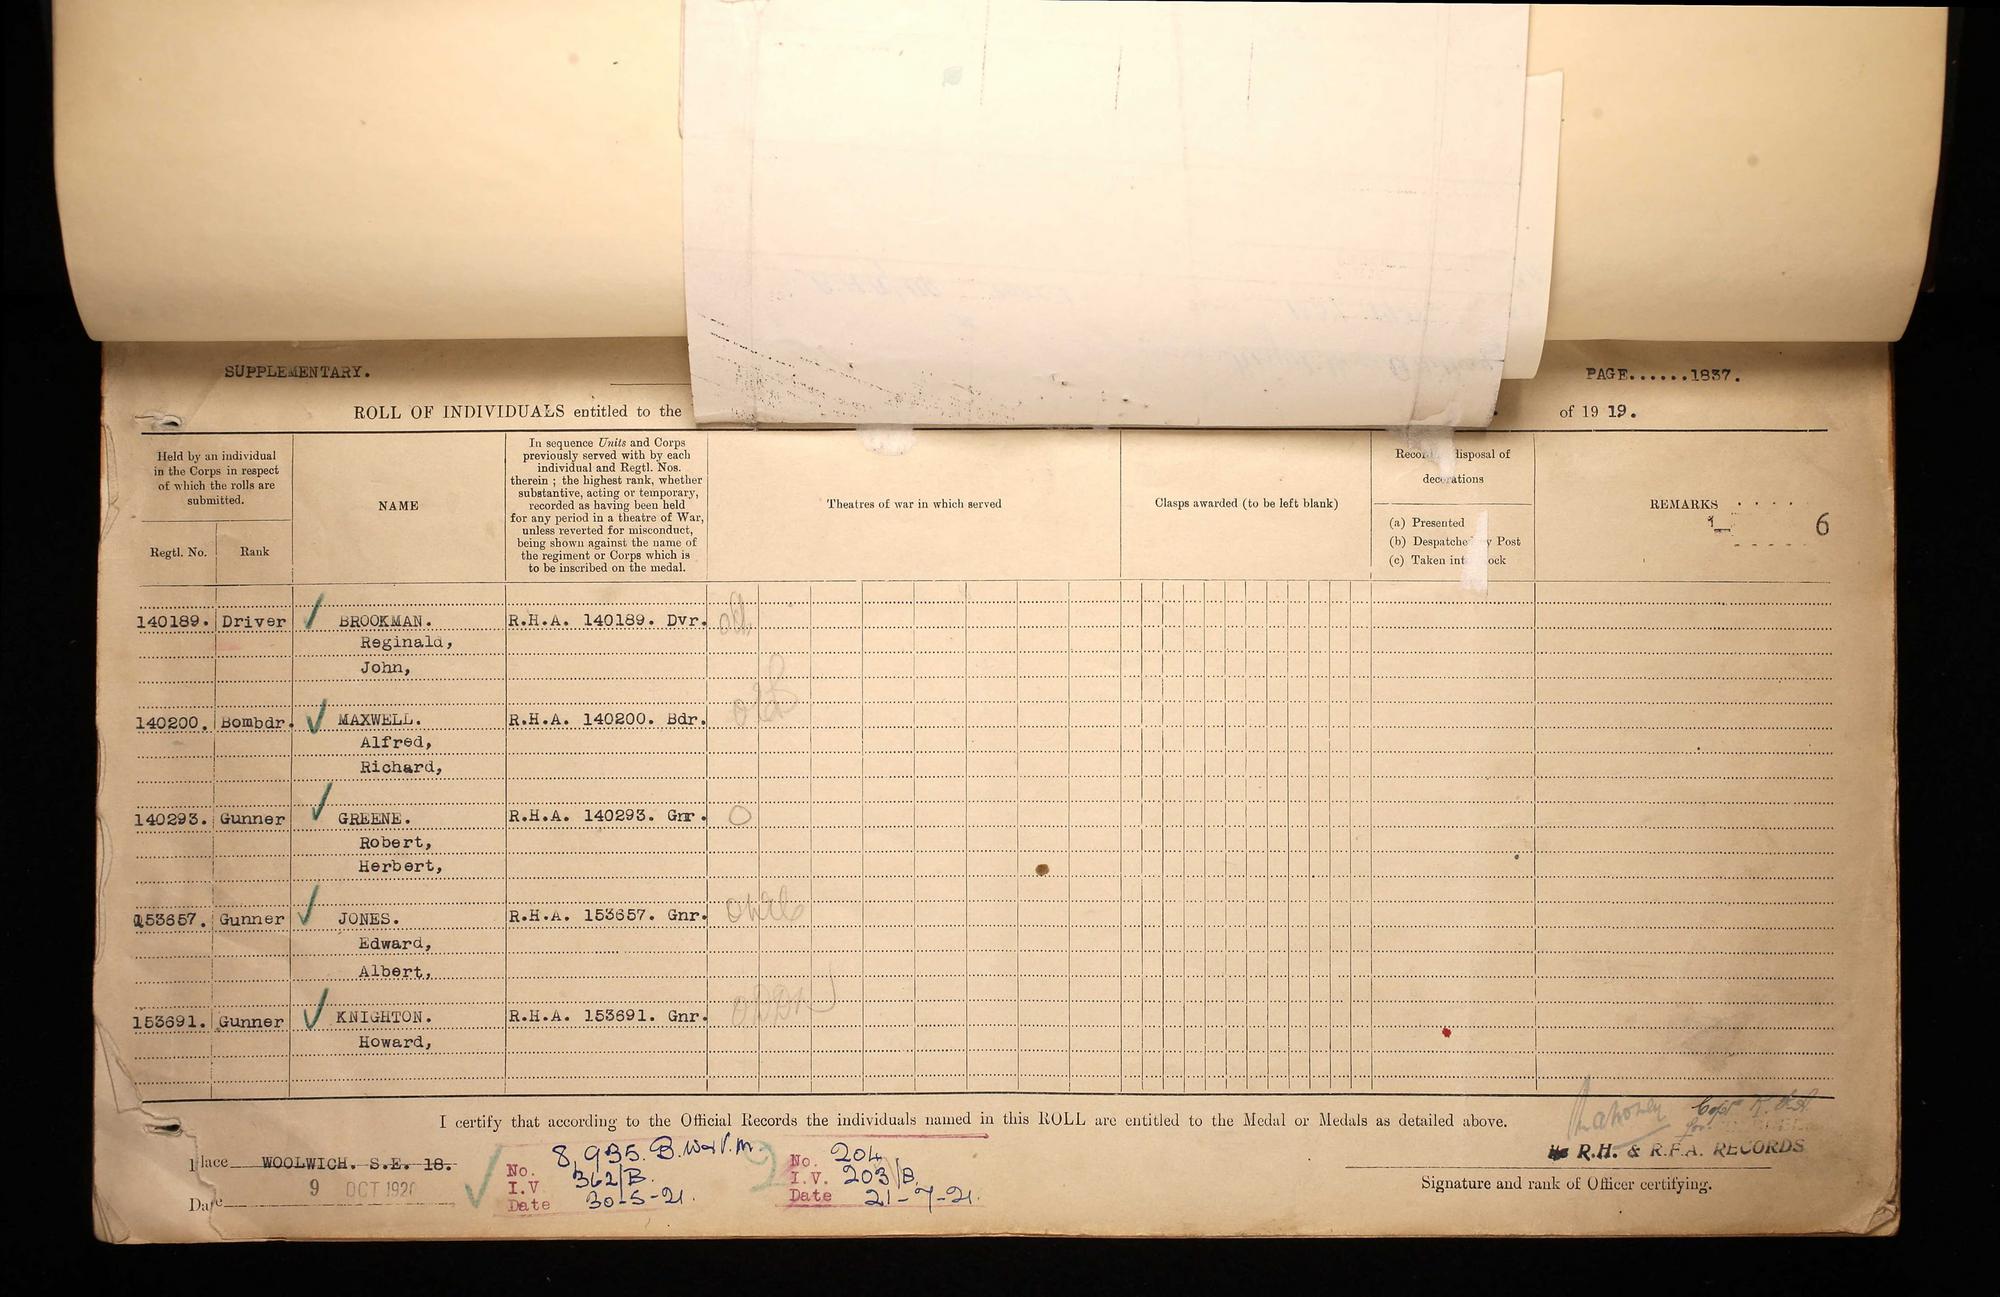 SUPPLEMENTARY.
PAGE......1837.
ROLL OF INDIVIDUALS entitled to the
of 19 19.
Held by an individual
in the Corps in respect
of which the rolls are
submitted.
Regtl. No.
Rank
NAME
In sequence Units and Corps
previously served with by each
individual and Regtl. Nos.
therein ; the highest rank, whether
substantive, acting or temporary,
recorded as having been held
for any period in a theatre of War,
unless reverted for misconduct,
being shown against the name of
the regiment or Corps which is
to be inscribed on the medal.
Theatres of war in which served
Clasps awarded (to be left blank)
disposal of
decorations
(a) Presented
(b) Despatche y Post
(c) Taken int ock
REMARKS
6
140189. Driver BROOKMAN. R.H.A. 140189. Dvr.
Reginald,
John,
140200. Bombdr. MAXWELL. R.H.A. 140200. Bdr.
Alfred,
Richard,
140293. Gunner GREENE. R.H.A. 140293. Gnr.
Robert,
Herbert,
153657. Gunner JONES. R.H.A. 153657. Gnr.
Edward,
Albert,
153691. Gunner KNIGHTON. R.H.A. 153691. Gnr.
Howard,
I certify that according to the Official Records the individuals named in this ROLL are entitled to the Medal or Medals as detailed above.
Place WOOLWICH. S.E. 18.
Date 9 OCT 1920
No. 8,935. B.War.M.
I.V 362/B.
Date 30-5-21.
No. 204
I.V. 203/B.
Date 21-7-21.
R.H. & R.F.A. RECORDS
Signature and rank of Officer certifying.